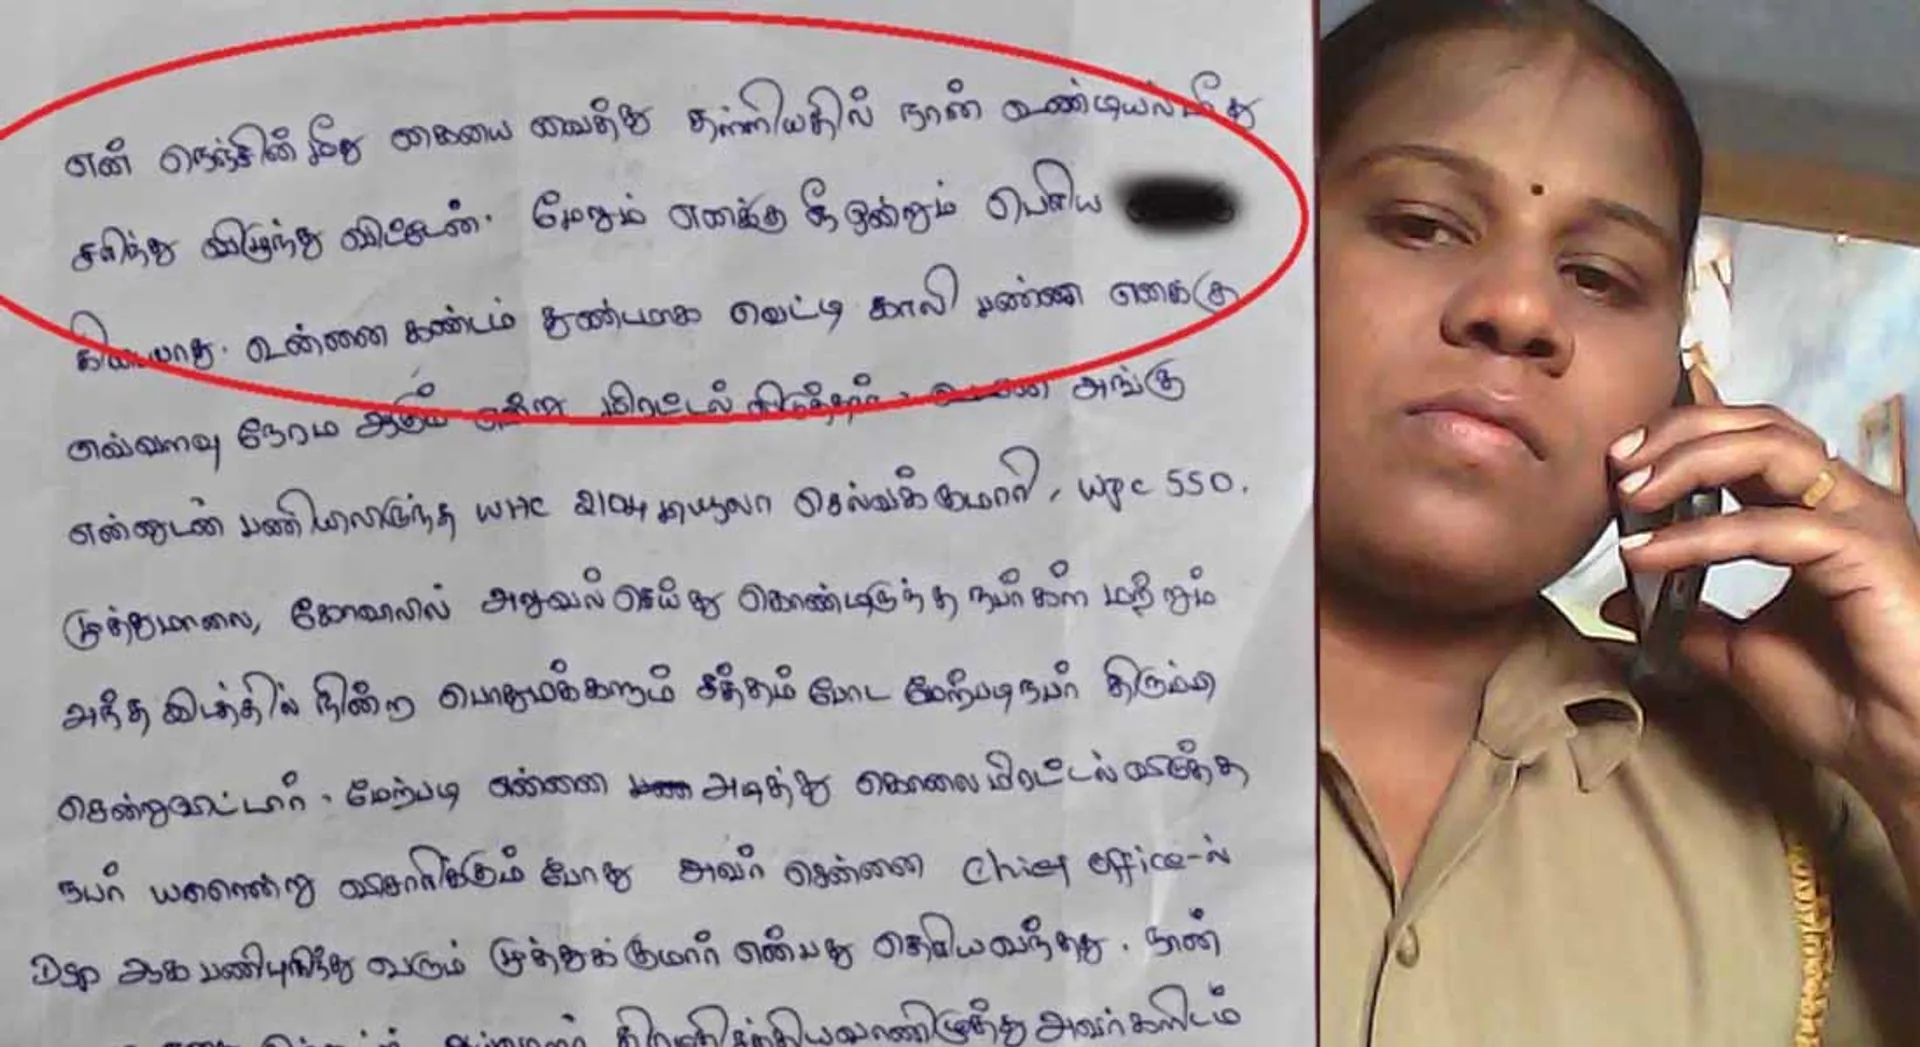 என் நெஞ்சின் மீது கையை வைத்து தள்ளியதில் நான் உண்டியல் மீது
சரிந்து விழுந்து விட்டேன். மேலும் எனக்கு நீ ஒன்றும் பெரிய
கிடையாது. உன்னை கண்டம் துண்டமாக வெட்டி காலி பண்ண எனக்கு
எவ்வளவு நேரம் ஆகும் என்று மிரட்டல் விடுத்தார். உடனே அங்கு
என்னுடன் பணியிலிருந்த WHC 2104 செல்வக்குமாரி, WPC 550.
முத்துமாலை, கோவிலில் அலுவல் செய்து கொண்டிருந்த நபர்கள் மற்றும்
அந்த இடத்தில் நின்ற பொதுமக்களும் சத்தம் போட மேற்படி நபர் திரும்பி
சென்றுவிட்டார். மேற்படி என்னை அடித்து கொலை மிரட்டல் விடுத்த
நபர் யாரென்று விசாரிக்கும் போது அவர் சென்னை Chief office-ல்
DSP ஆக பணிபுரிந்து வரும் முத்துக்குமார் என்பது தெரியவந்தது. நான்
அவர்களிடம்